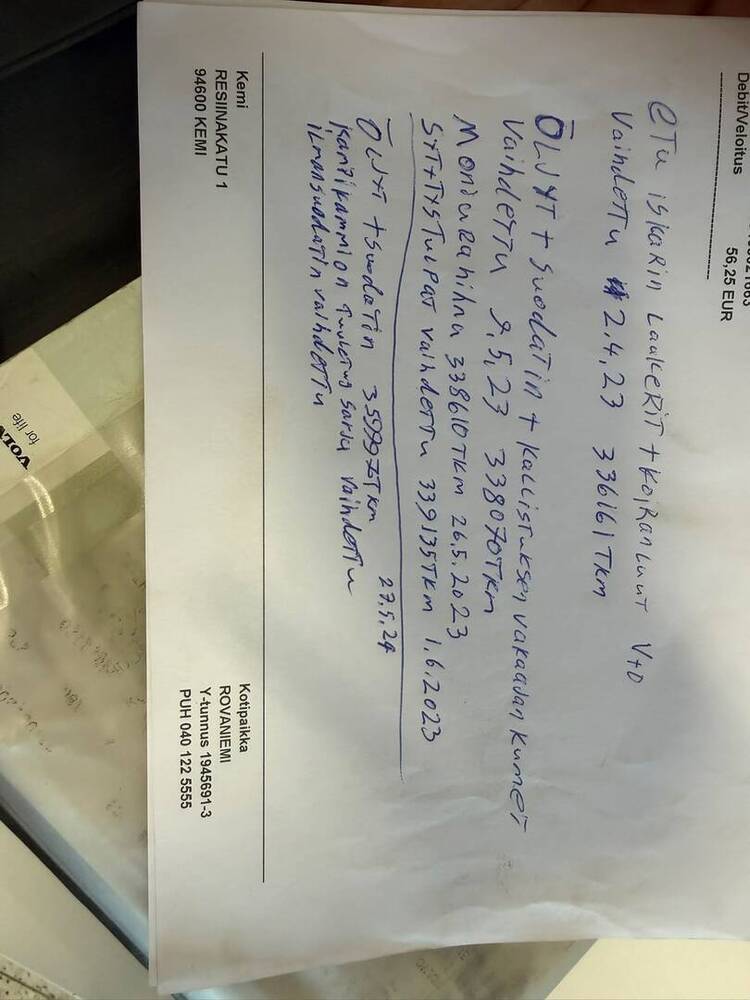 Debit/Veloitus
56,25 EUR
eTu iskarin LaakeRiT + KoiRanLuut V+O
Vaihdettu 2.4.23 336161TKm
ÖLJYT + Suodatin + Kallistuksen vakaadan Kumet
Vaihdettu 9.5,23 338070TKm
Moniurahihna 338610TKm 26.5.2023
SYTYTYSTulpat vaihdettu 339135TKm 1.6.2023
ÖLJYT + Suodatin TKm 27.5.24
Kampikammion Tuuletus sarja vaihdettu
ilmansuodatin vaihdettu
Kemi
RESIINAKATU 1
94600 KEMI
Kotipaikka
ROVANIEMI
Y-tunnus 1945691-3
PUH 040 122 5555
for life